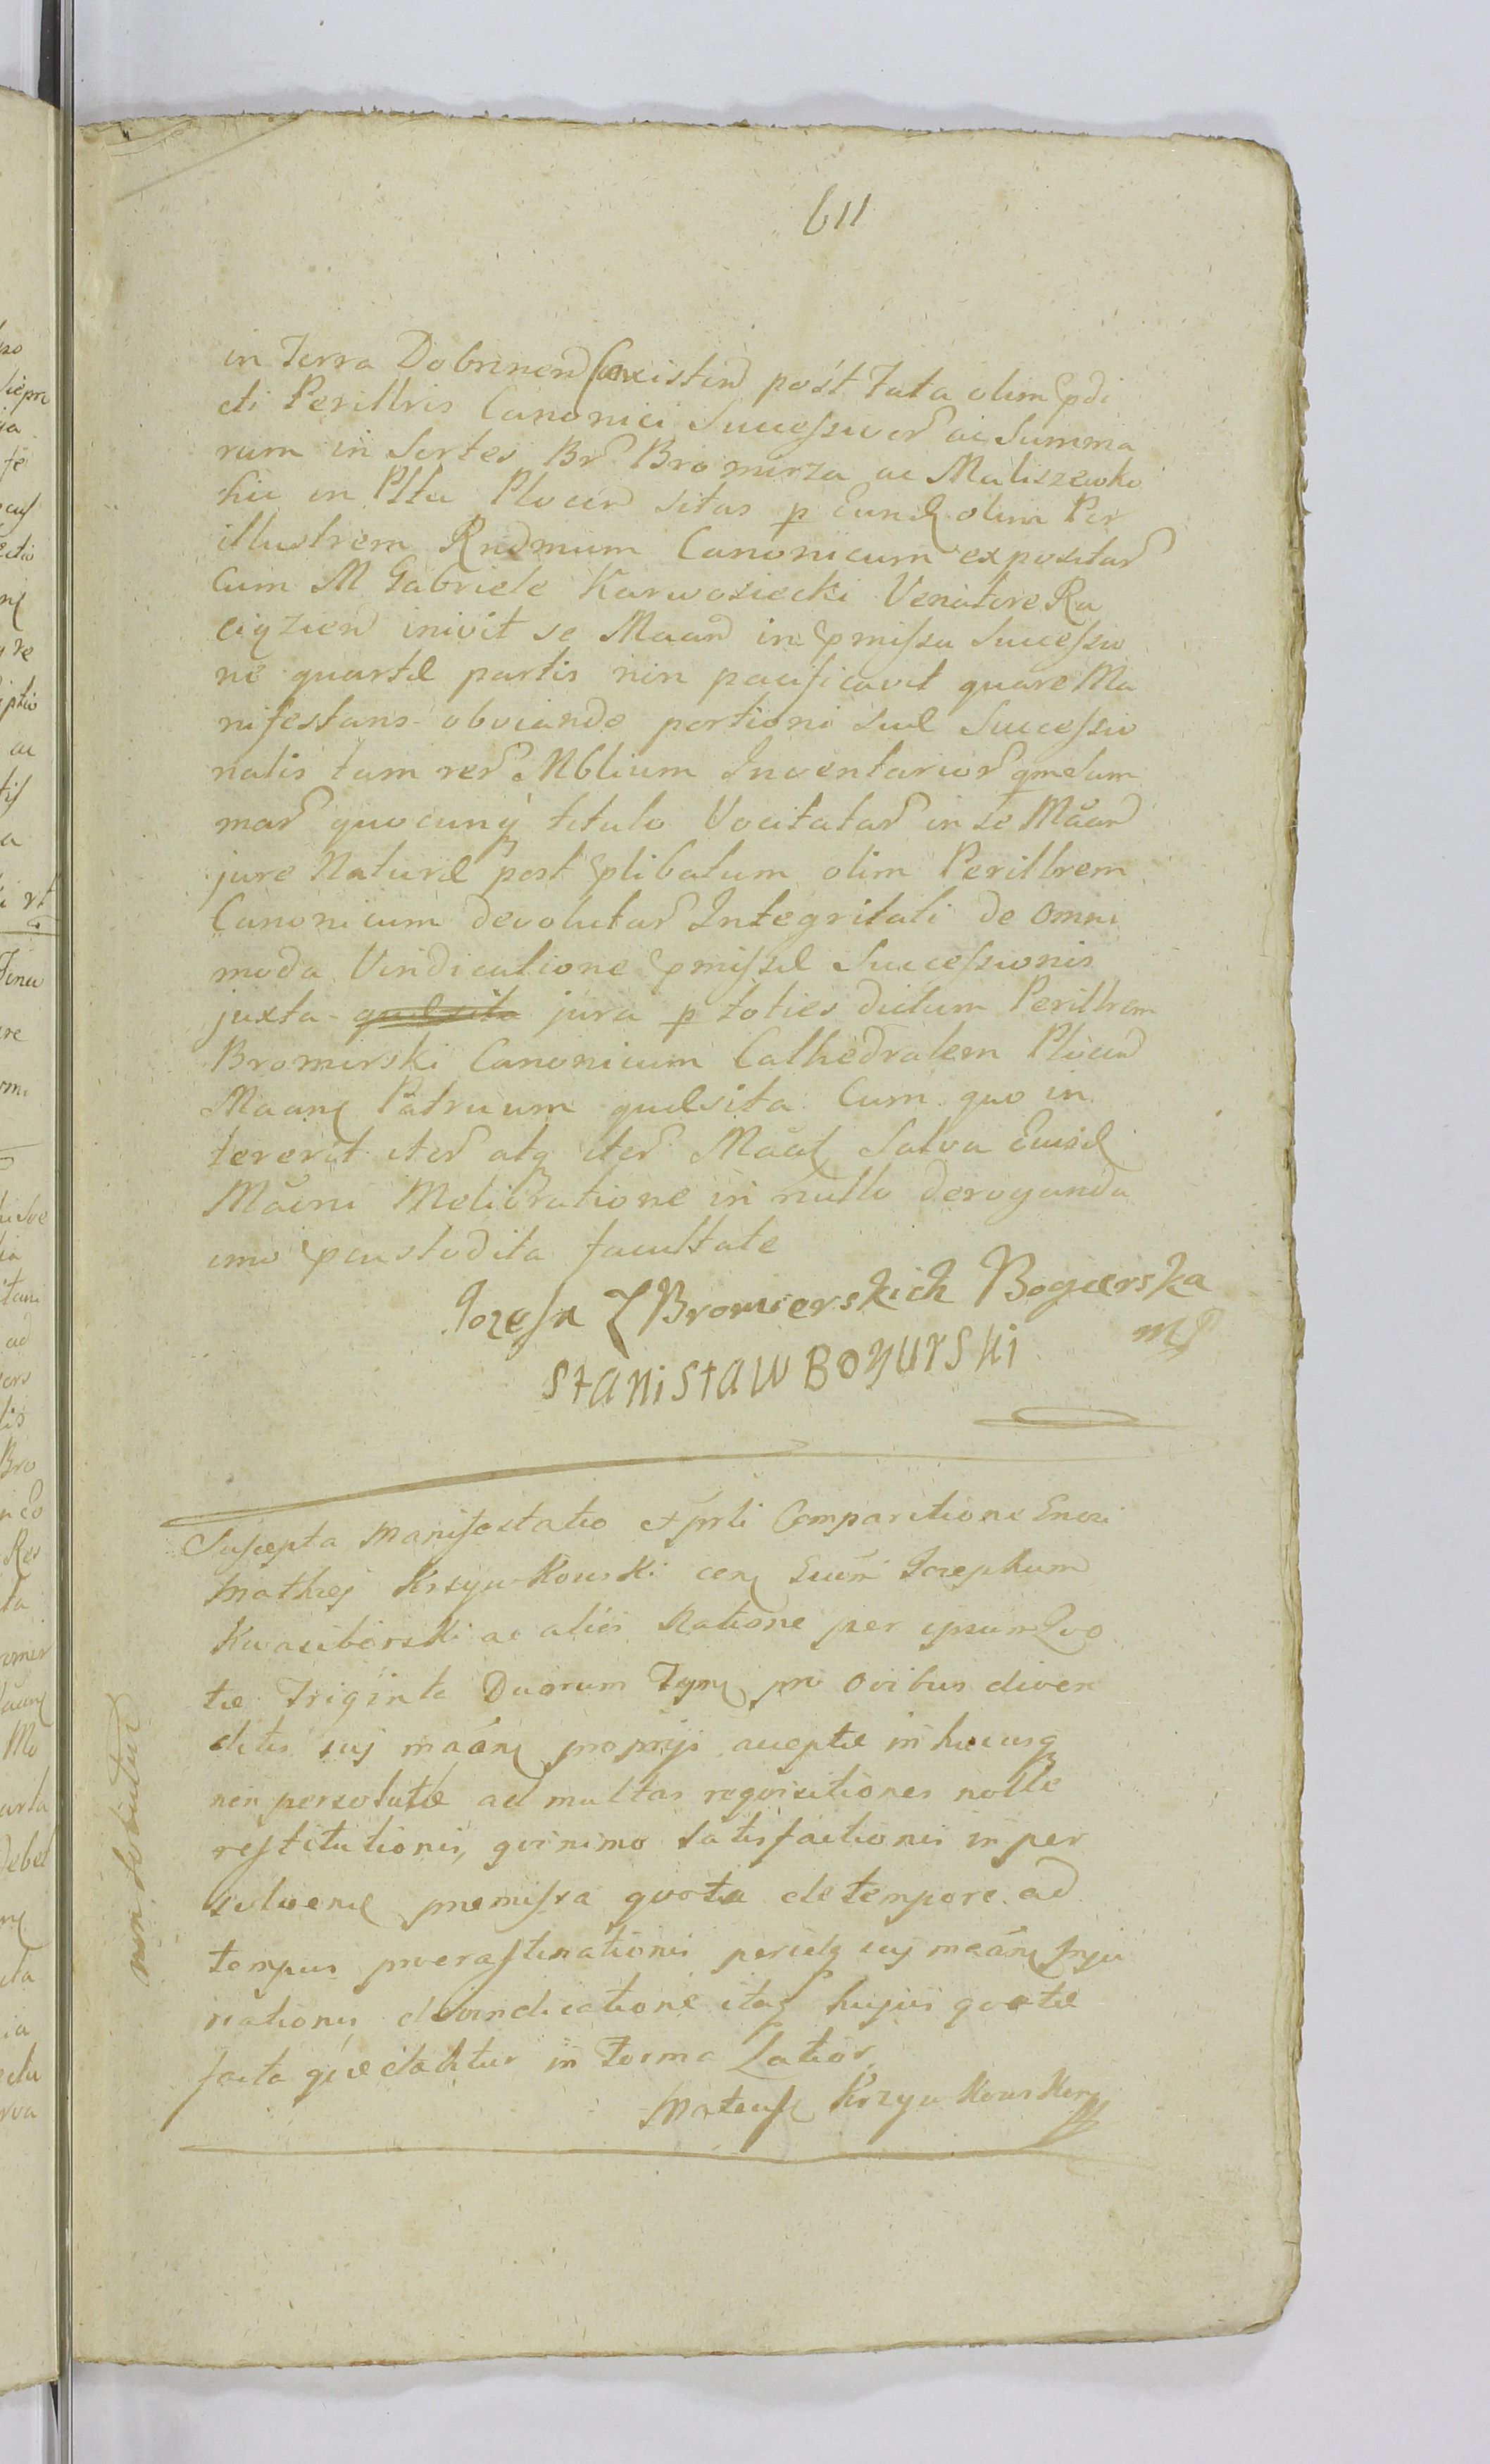 611
in Terra Dobrinen existen post Fata olim pdi
cti Perillris Canonici Successivor ac Summa
rum in Sortes Br Bromirza ac Maliszewko
hic in Pltu Plocen sitas p Eund olim Per
illustrem Rndmum Canonicum expositar
Cum M Gabriele Karwosiecki Venatore Ra
ciązien inivit se Maan in pmissa Successio
ne quartæ partis nin pacificavit quare Ma
nifestans obviando portioni suæ Successio
nalis tam rer Mblium Inventarior qm Sum
mar quocunq titulo Vocitatar in se Maan
jure Naturæ post plibatum olim Perillrem
Canonicum devolutar Integritati de omni
moda Vindicatione pmissæ Successionis
juxta quæsita jura p toties dictum Perillrem
Bromirski Canonicum Cathedralem Plocen
Maan Patruum quæsita Cum quo in
tererit iter atq iter Maat Salva Euisd
Maõni Melioratione in nullo deroganda
imo pcustodita facultate
Jozefa Z Bromierskich Bogucrska
mp
Stanistaw Bogurski
Suscepta Manifestatio Comparitione Enosi
Mathej Krzyukowski Josephum
Kwasiborski ac alios Ratione per ipsum Quo
tæ Triginta Duorum Tyn pro Ovibus diven
ditis suj maõne proprijs acceptæ in hucusq
nen persolutæ ad multas requisitiones nolle
restitutionis, quinimo Satisfactionis in per
solven premissa quota de tempore ad
tempus procrastinationis suj Inju
riationis devindicatione itaq hujus quotæ
facta in Forma Latior
Mateusz Krzyukowski
non solutum